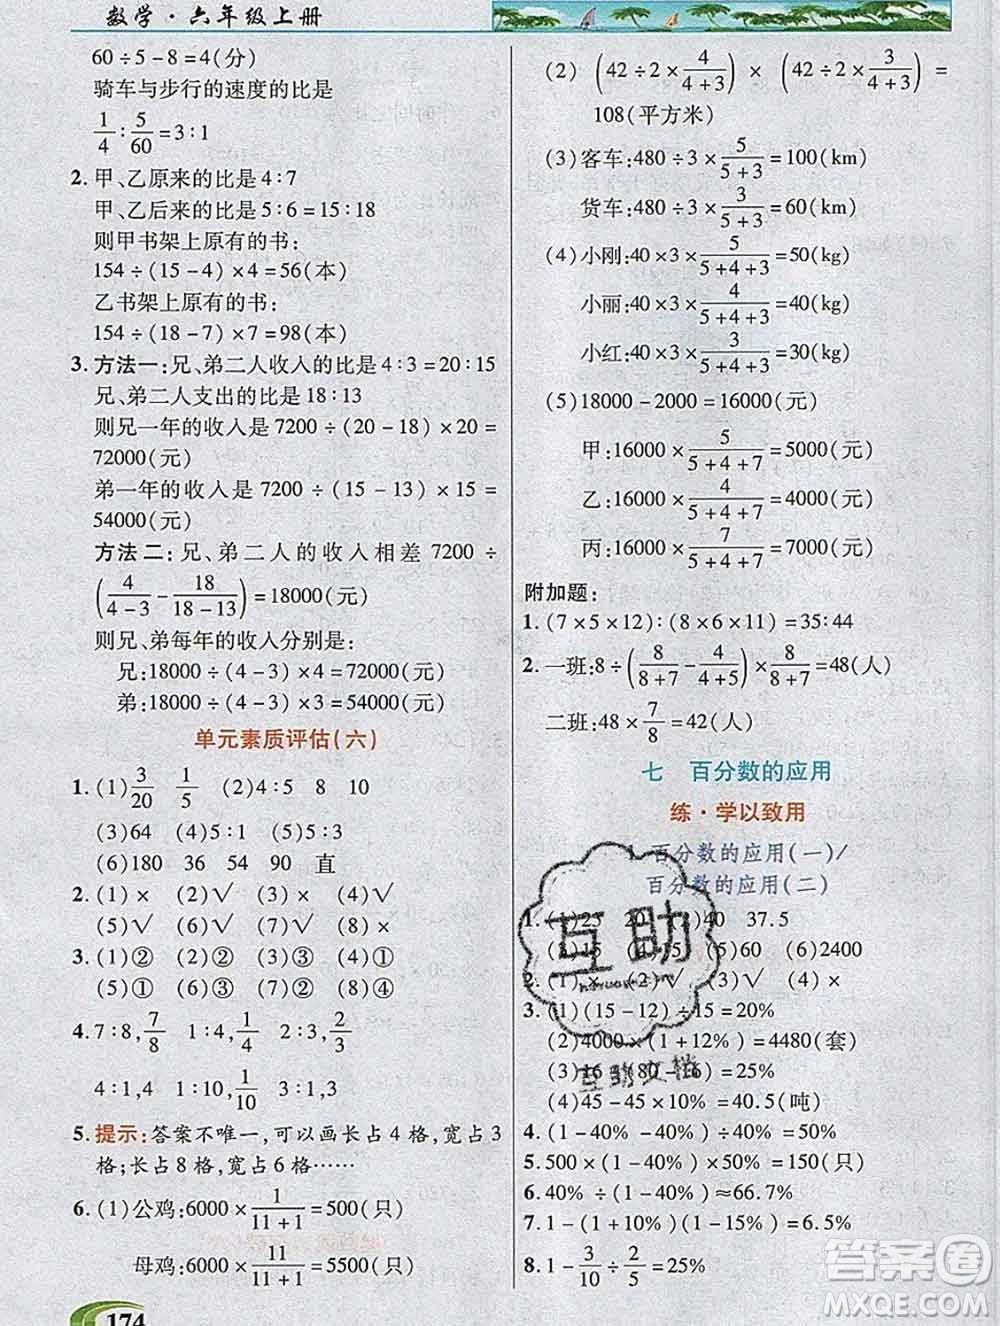 数学·六年级上册
60÷5-8=4(分)
骑车与步行的速度的比是
1/4:5/60=3:1
2.甲、乙原来的比是4:7
甲、乙后来的比是5:6=15:18
则甲书架上原有的书:
154÷(15-4)×4=56(本)
乙书架上原有的书:
154÷(18-7)×7=98(本)
3.方法一:兄、弟二人收入的比是4:3=20:15
兄、弟二人支出的比是18:13
则兄一年的收入是7200÷(20-18)×20=
72000(元)
弟一年的收入是7200÷(15-13)×15=
54000(元)
方法二:兄、弟二人的收入相差7200÷
(4/(4-3)-18/(18-13))=18000(元)
则兄、弟每年的收入分别是:
兄:18000÷(4-3)×4=72000(元)
弟:18000÷(4-3)×3=54000(元)
单元素质评估(六)
1.(1)3/20 1/5 (2)4:5 8 10
(3)64 (4)5:1 (5)5:3
(6)180 36 54 90 直
2.(1)× (2)√ (3)× (4)√
(5)√ (6)√ (7)√ (8)×
3.(1)② (2)② (3)② (4)①
(5)① (6)① (7)② (8)①
4.7:8,7/8 1:4,1/4 2:3,2/3
4:1,4 1:10,1/10 1:3,1/3
5.提示:答案不唯一,可以画长占4格,宽占3
格;长占8格,宽占6格……
6.(1)公鸡:6000×1/(11+1)=500(只)
母鸡:6000×11/(11+1)=5500(只)
174
(2)(42÷2×4/(4+3))×(42÷2×3/(4+3))=
108(平方米)
(3)客车:480÷3×5/(5+3)=100(km)
货车:480÷3×3/(5+3)=60(km)
(4)小刚:40×3×5/(5+4+3)=50(kg)
小丽:40×3×4/(5+4+3)=40(kg)
小红:40×3×3/(5+4+3)=30(kg)
(5)18000-2000=16000(元)
甲:16000×5/(5+4+7)=5000(元)
乙:16000×4/(5+4+7)=4000(元)
丙:16000×7/(5+4+7)=7000(元)
附加题:
1.(7×5×12):(8×6×11)=35:44
2.一班:8÷(8/(8+7)-4/(4+5))×8/(8+7)=48(人)
二班:48×7/8=42(人)
七 百分数的应用
练·学以致用
百分数的应用(一)/
百分数的应用(二)
1.(1)25 20 40 37.5
15 (5)60 (6)2400
2.(1)× (2)√ (3)√ (4)×
3.(1)(15-12)÷15=20%
(2)4000×(1+12%)=4480(套)
(3)16÷(80-16)=25%
(4)45-45×10%=40.5(吨)
4.(1-40%-40%)÷40%=50%
5.500×(1-40%)×50%=150(只)
6.40%÷(1-40%)≈66.7%
7.1-(1-15%)(1-15%)=6.5%
8.1-3/10÷2/5=25%
互助
互助文档
答案圈
MXQE.COM